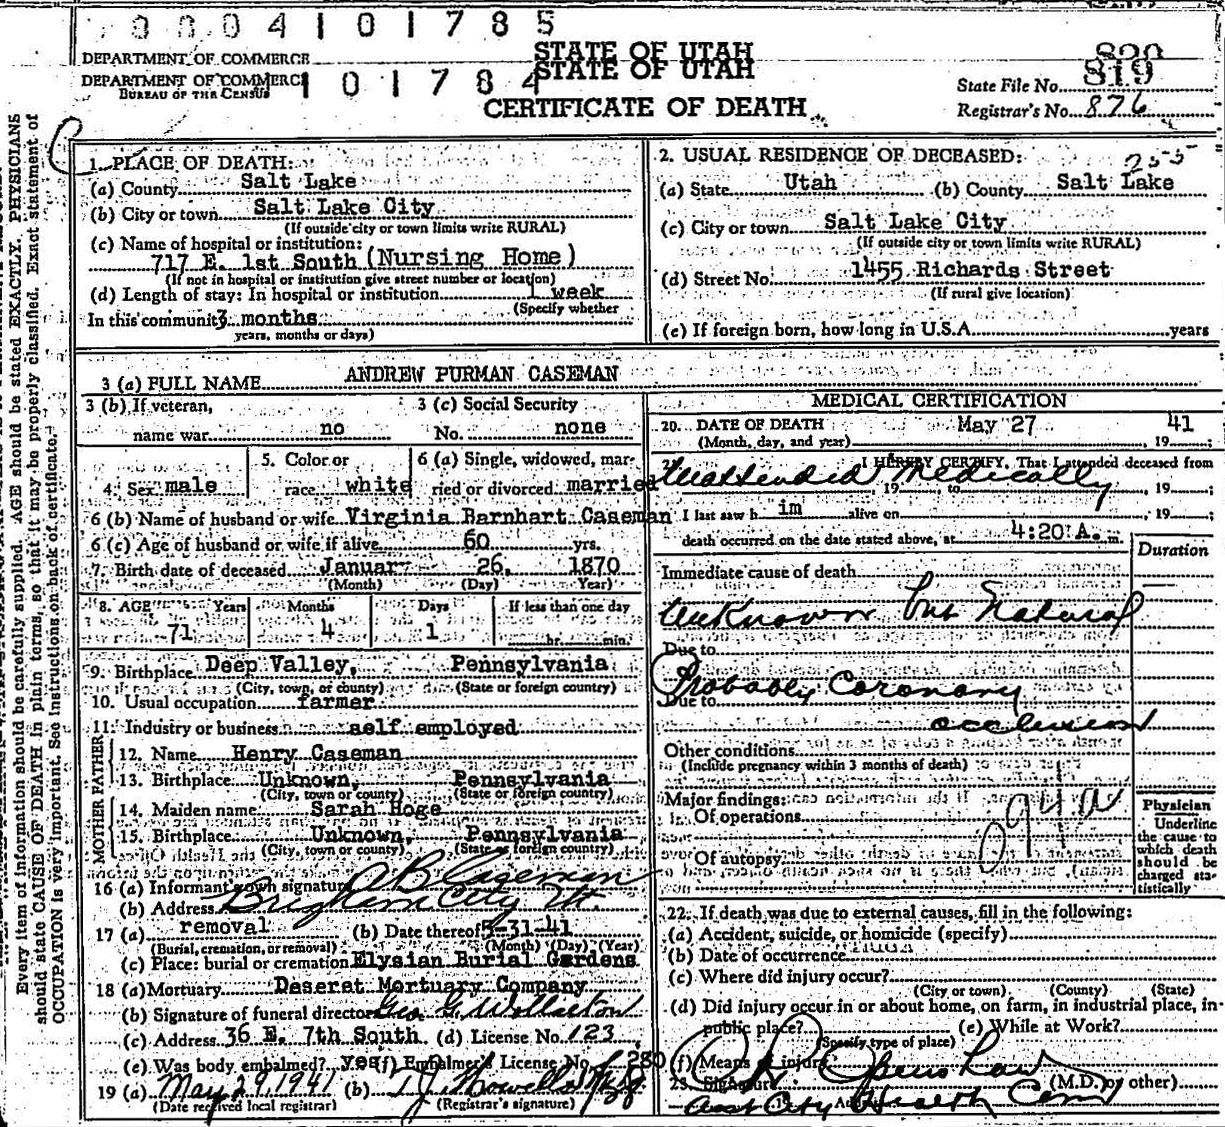 0004101785
DEPARTMENT OF COMMERCE
STATE OF UTAH
820
DEPARTMENT OF COMMERCE
101784
STATE OF UTAH
819
BUREAU OF THE CENSUS
State File No.
CERTIFICATE OF DEATH
Registrar's No. 876
Every item of information should be carefully supplied. AGE should be stated EXACTLY. PHYSICIANS
should state CAUSE OF DEATH in plain terms, so that it may be properly classified. Exact statement of
OCCUPATION is very important. See instructions on back of certificate.
1. PLACE OF DEATH:
(a) County Salt Lake
(b) City or town Salt Lake City
(If outside city or town limits write RURAL)
(c) Name of hospital or institution:
717 E. 1st South (Nursing Home)
(If not in hospital or institution give street number or location)
(d) Length of stay: In hospital or institution 1 week
(Specify whether
In this community 3 months
years, months or days)
2. USUAL RESIDENCE OF DECEASED: 255
(a) State Utah (b) County Salt Lake
(c) City or town Salt Lake City
(If outside city or town limits write RURAL)
(d) Street No. 1455 Richards Street
(If rural give location)
(e) If foreign born, how long in U.S.A. years
3 (a) FULL NAME ANDREW PURMAN CASEMAN
3 (b) If veteran, 3 (c) Social Security
name war no No. none
4. Sex male
5. Color or
race white
6 (a) Single, widowed, mar-
ried or divorced married
6 (b) Name of husband or wife Virginia Barnhart Caseman
6 (c) Age of husband or wife if alive 60 yrs.
7. Birth date of deceased January 26, 1870
(Month) (Day) (Year)
8. AGE Years Months Days If less than one day
71 4 1 hr. min.
9. Birthplace Deep Valley, Pennsylvania
(City, town, or county) (State or foreign country)
10. Usual occupation farmer
11. Industry or business self employed
FATHER
12. Name Henry Caseman
13. Birthplace Unknown, Pennsylvania
(City, town or county) (State or foreign country)
MOTHER
14. Maiden name Sarah Hoge
15. Birthplace Unknown, Pennsylvania
(City, town or county) (State or foreign country)
16 (a) Informant's own signature A B Caseman
(b) Address Brigham City Ut.
17 (a) removal (b) Date thereof 5-31-41
(Burial, cremation, or removal) (Month) (Day) (Year)
(c) Place: burial or cremation Elysian Burial Gardens
18 (a) Mortuary Deseret Mortuary Company
(b) Signature of funeral director Geo. G.
(c) Address 36 E. 7th South (d) License No. 123
(e) Was body embalmed? yes (f) Embalmer's License No. 280
19 (a) May 29 1941 (b) T J Howells
(Date received local registrar) (Registrar's signature)
MEDICAL CERTIFICATION
20. DATE OF DEATH May 27 41
(Month, day, and year) 19
I HEREBY CERTIFY, That I attended deceased from
Unattended Medically
, 19 , to , 19 ;
I last saw h im alive on , 19 ;
death occurred on the date stated above, at 4:20 A. m.
Duration
Immediate cause of death
Unknown but Natural
Due to
Probably Coronary
Due to
occlusion
Other conditions
(Include pregnancy within 3 months of death)
Major findings:
Of operations
094a
Of autopsy
Physician
Underline
the cause to
which death
should be
charged sta-
tistically
22. If death was due to external causes, fill in the following:
(a) Accident, suicide, or homicide (specify)
(b) Date of occurrence
(c) Where did injury occur?
(City or town) (County) (State)
(d) Did injury occur in or about home, on farm, in industrial place, in
public place? (e) While at Work?
(Specify type of place)
(f) Means of injury
23. Signature Openshaw (M.D. or other)
Asst City Health Com